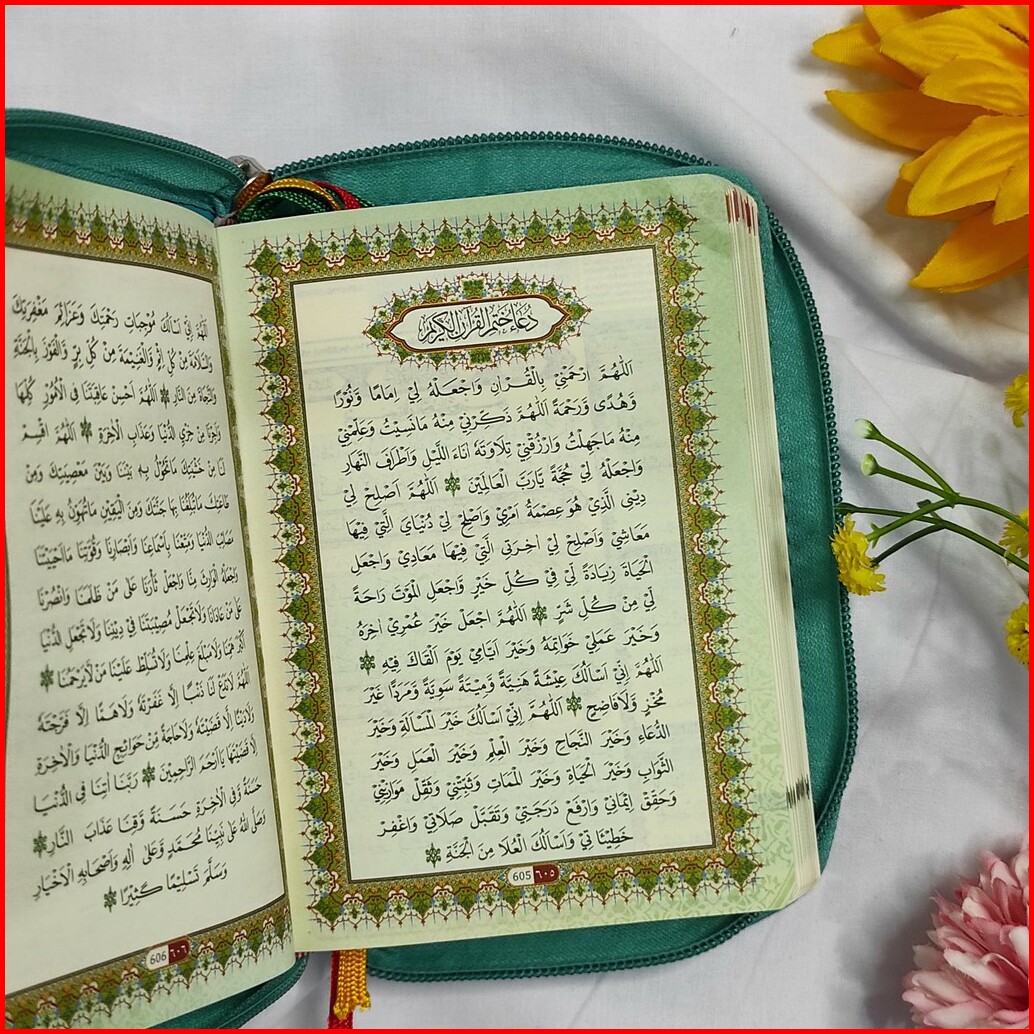 دُعَاءُ خَتْمِ الْقُرْآنِ الْكَرِيْمِ
اَللّٰهُمَّ ارْحَمْنِيْ بِالْقُرْاٰنِ وَاجْعَلْهُ لِيْ اِمَامًا وَّنُوْرًا
وَّهُدًى وَّرَحْمَةً اَللّٰهُمَّ ذَكِّرْنِيْ مِنْهُ مَا نَسِيْتُ وَعَلِّمْنِيْ
مِنْهُ مَاجَهِلْتُ وَارْزُقْنِيْ تِلَاوَتَهُ اٰنَاءَ اللَّيْلِ وَاَطْرَافَ النَّهَارِ
وَاجْعَلْهُ لِيْ حُجَّةً يَّارَبَّ الْعَالَمِيْنَ ۞ اَللّٰهُمَّ اَصْلِحْ لِيْ
دِيْنِى الَّذِيْ هُوَ عِصْمَةُ اَمْرِيْ وَاَصْلِحْ لِيْ دُنْيَايَ الَّتِيْ فِيْهَا
مَعَاشِيْ وَاَصْلِحْ لِيْ اٰخِرَتِى الَّتِيْ فِيْهَا مَعَادِيْ وَاجْعَلِ
الْحَيَاةَ زِيَادَةً لِّيْ فِيْ كُلِّ خَيْرٍ وَّاجْعَلِ الْمَوْتَ رَاحَةً
لِّيْ مِنْ كُلِّ شَرٍّ ۞ اَللّٰهُمَّ اجْعَلْ خَيْرَ عُمْرِيْ اٰخِرَهُ
وَخَيْرَ عَمَلِيْ خَوَاتِمَهُ وَخَيْرَ اَيَّامِيْ يَوْمَ اَلْقَاكَ فِيْهِ ۞
اَللّٰهُمَّ اِنِّيْ اَسْاَلُكَ عِيْشَةً هَنِيَّةً وَّمِيْتَةً سَوِيَّةً وَّمَرَدًّا غَيْرَ
مُخْزٍ وَّلَافَاضِحٍ ۞ اَللّٰهُمَّ اِنِّيْ اَسْاَلُكَ خَيْرَ الْمَسْاَلَةِ وَخَيْرَ
الدُّعَاءِ وَخَيْرَ النَّجَاحِ وَخَيْرَ الْعِلْمِ وَخَيْرَ الْعَمَلِ وَخَيْرَ
الثَّوَابِ وَخَيْرَ الْحَيَاةِ وَخَيْرَ الْمَمَاتِ وَثَبِّتْنِيْ وَثَقِّلْ مَوَازِيْنِيْ
وَحَقِّقْ اِيْمَانِيْ وَارْفَعْ دَرَجَتِيْ وَتَقَبَّلْ صَلَاتِيْ وَاغْفِرْ
خَطِيْئَاتِيْ وَاَسْاَلُكَ الْعُلَا مِنَ الْجَنَّةِ ۞
605 ٦٠٥
اَللّٰهُمَّ اِنِّيْ اَسْاَلُكَ مُوْجِبَاتِ رَحْمَتِكَ وَعَزَائِمَ مَغْفِرَتِكَ
وَالسَّلَامَةَ مِنْ كُلِّ اِثْمٍ وَّالْغَنِيْمَةَ مِنْ كُلِّ بِرٍّ وَّالْفَوْزَ بِالْجَنَّةِ
وَالنَّجَاةَ مِنَ النَّارِ ۞ اَللّٰهُمَّ اَحْسِنْ عَاقِبَتَنَا فِى الْاُمُوْرِ كُلِّهَا
وَاَجِرْنَا مِنْ خِزْيِ الدُّنْيَا وَعَذَابِ الْاٰخِرَةِ ۞ اَللّٰهُمَّ اقْسِمْ
لَنَا مِنْ خَشْيَتِكَ مَاتَحُوْلُ بِهٖ بَيْنَنَا وَبَيْنَ مَعْصِيَتِكَ وَمِنْ
طَاعَتِكَ مَاتُبَلِّغُنَا بِهَا جَنَّتَكَ وَمِنَ الْيَقِيْنِ مَاتُهَوِّنُ بِهٖ عَلَيْنَا
مَصَائِبَ الدُّنْيَا وَمَتِّعْنَا بِاَسْمَاعِنَا وَاَبْصَارِنَا وَقُوَّتِنَا مَااَحْيَيْتَنَا
وَاجْعَلْهُ الْوَارِثَ مِنَّا وَاجْعَلْ ثَأْرَنَا عَلٰى مَنْ ظَلَمَنَا وَانْصُرْنَا
عَلٰى مَنْ عَادَانَا وَلَاتَجْعَلْ مُصِيْبَتَنَا فِيْ دِيْنِنَا وَلَاتَجْعَلِ الدُّنْيَا
اَكْبَرَ هَمِّنَا وَلَامَبْلَغَ عِلْمِنَا وَلَاتُسَلِّطْ عَلَيْنَا مَنْ لَايَرْحَمُنَا ۞
اَللّٰهُمَّ لَاتَدَعْ لَنَا ذَنْبًا اِلَّا غَفَرْتَهُ وَلَاهَمًّا اِلَّا فَرَّجْتَهُ
وَلَادَيْنًا اِلَّا قَضَيْتَهُ وَلَاحَاجَةً مِّنْ حَوَائِجِ الدُّنْيَا وَالْاٰخِرَةِ
اِلَّا قَضَيْتَهَا يَااَرْحَمَ الرَّاحِمِيْنَ ۞ رَبَّنَا اٰتِنَا فِى الدُّنْيَا
حَسَنَةً وَّفِى الْاٰخِرَةِ حَسَنَةً وَّقِنَا عَذَابَ النَّارِ ۞
وَصَلَّى اللّٰهُ عَلٰى نَبِيِّنَا مُحَمَّدٍ وَّعَلٰى اٰلِهٖ وَاَصْحَابِهِ الْاَخْيَارِ
وَسَلَّمَ تَسْلِيْمًا كَثِيْرًا ۞
606 ٦٠٦